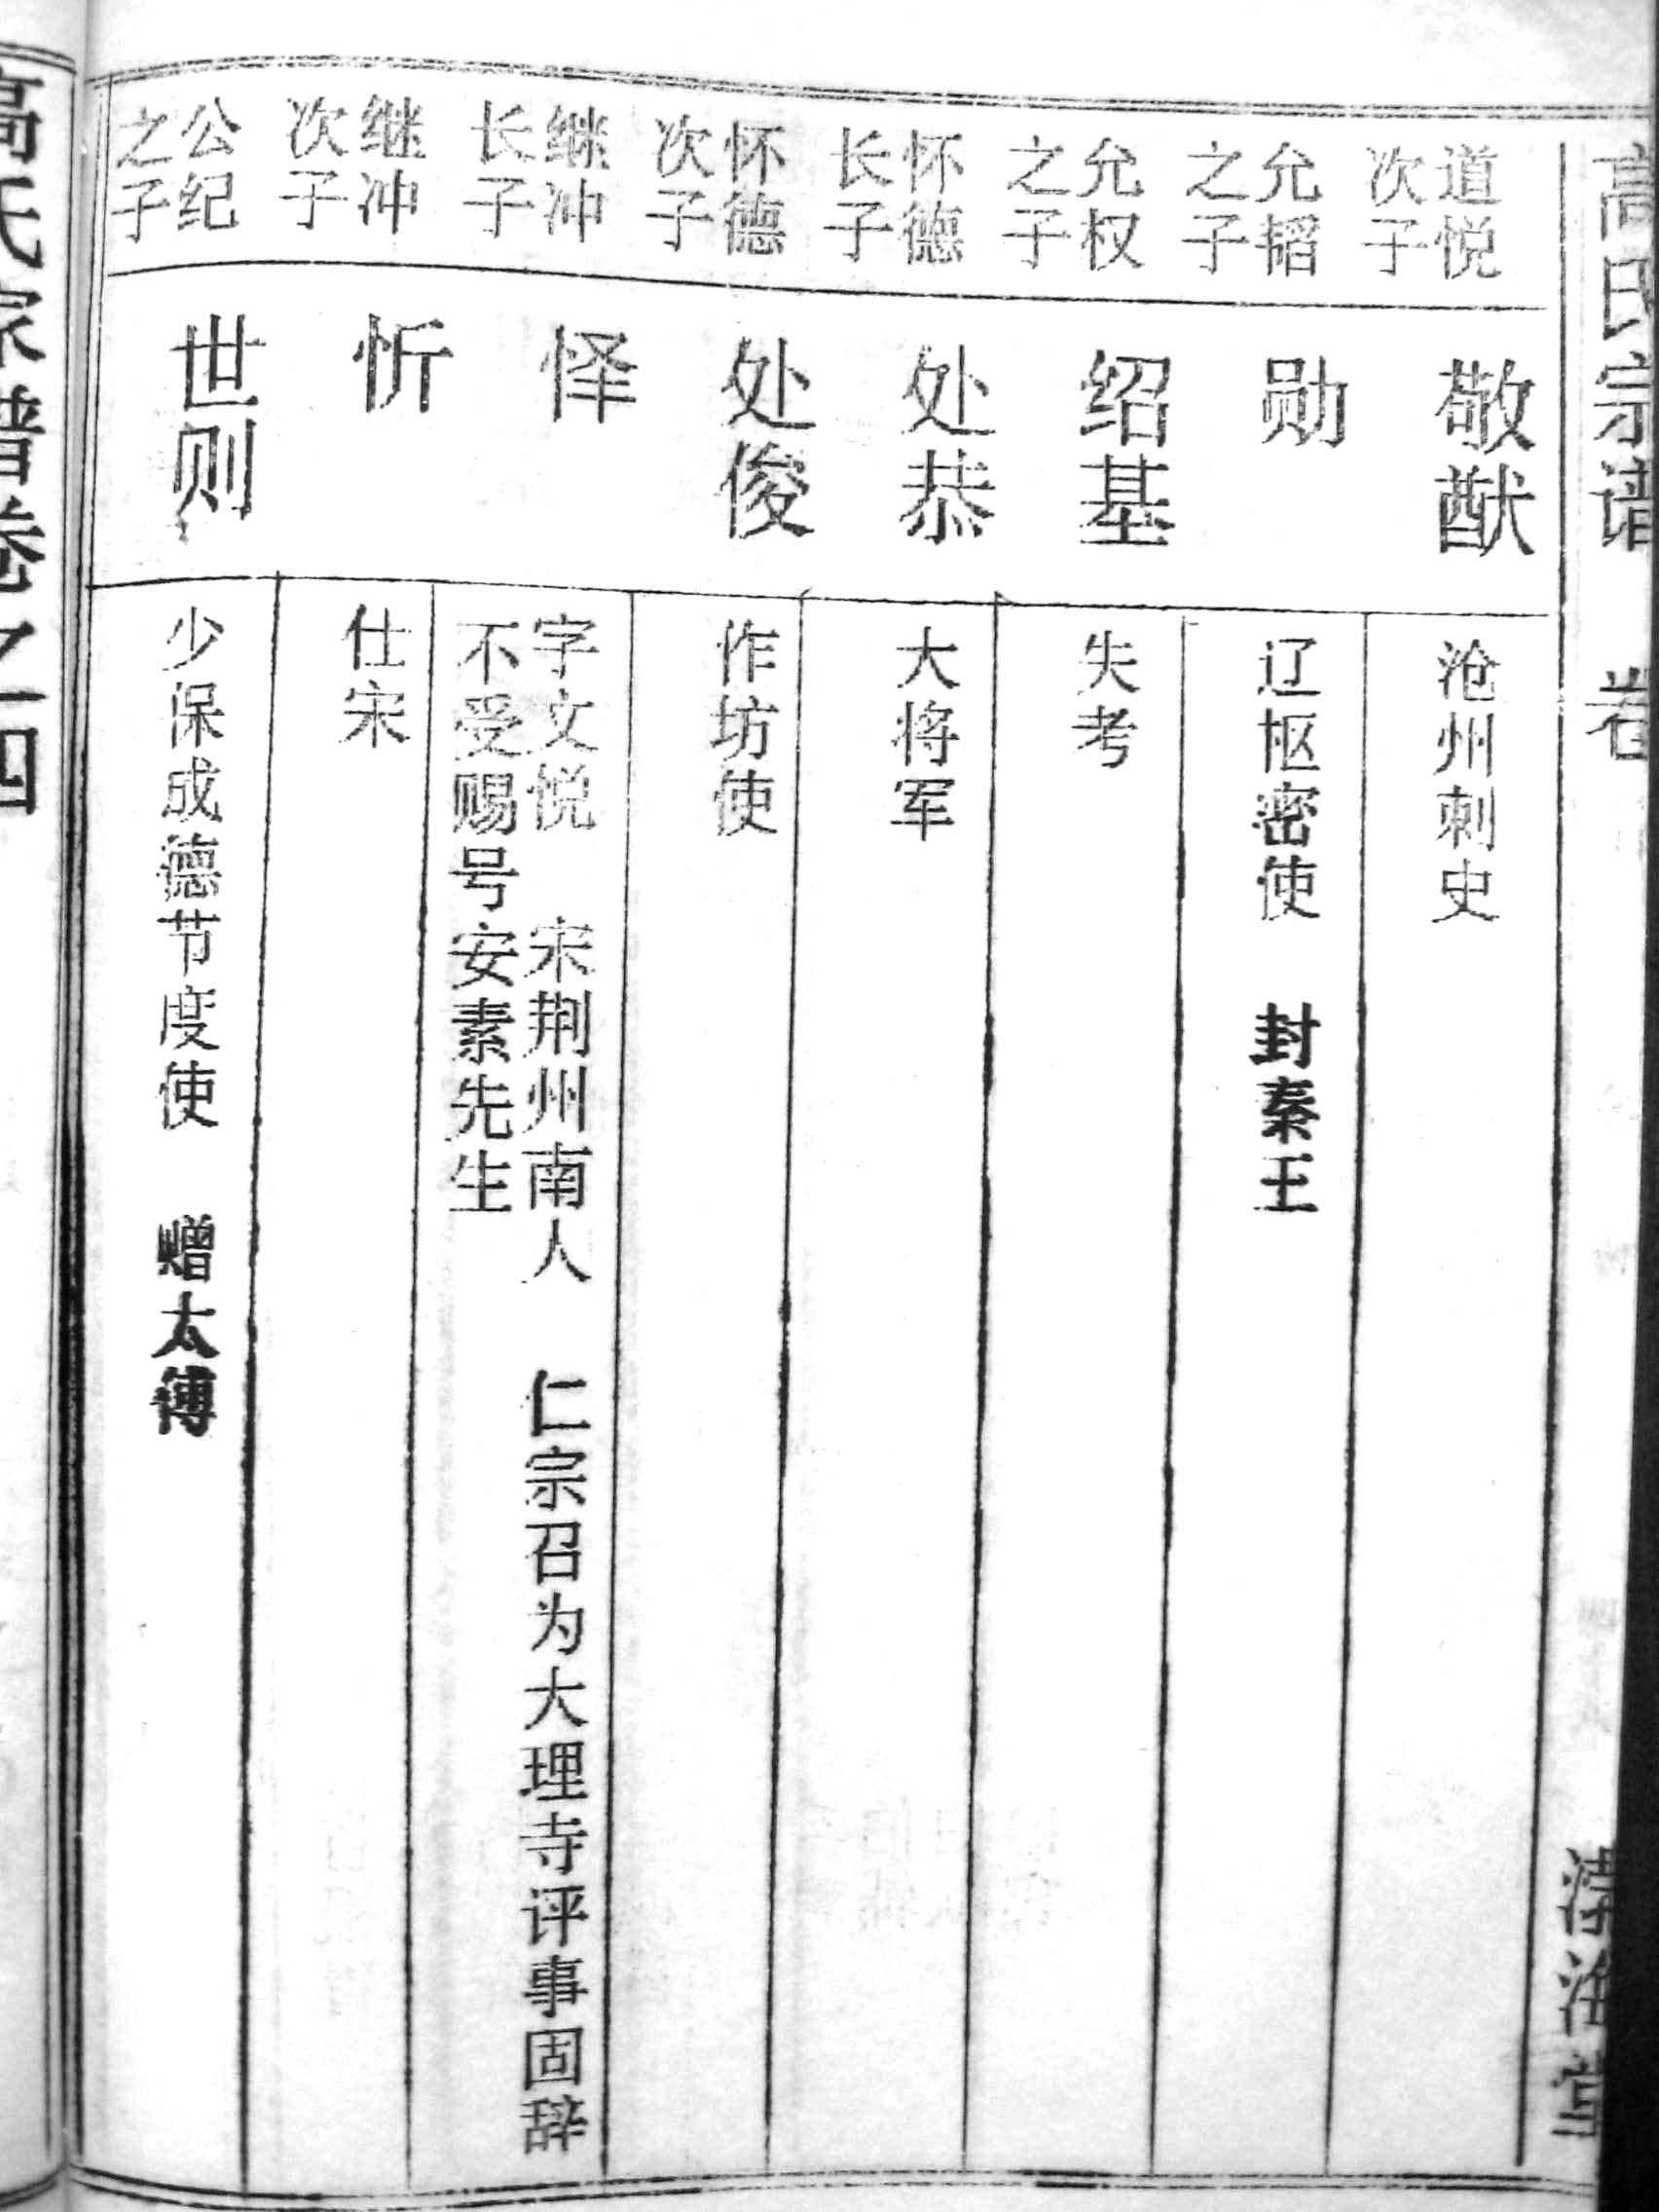 高氏宗谱 卷
道悦
次子
敬猷
沧州刺史
允韬
之子
勋
辽枢密使 封秦王
允权
之子
绍基
失考
怀德
长子
处恭
大将军
怀德
次子
处俊
作坊使
继冲
长子
怿
字文悦 宋荆州南人 仁宗召为大理寺评事固辞
不受赐号安素先生
继冲
次子
忻
仕宋
公纪
之子
世则
少保成德节度使 赠太傅
高氏家谱卷之四